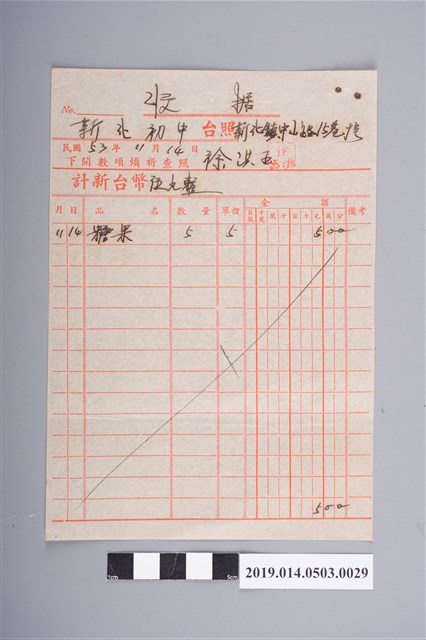 收據
No.
新北初中 台照 新北鎮中山路15巷 號
民國 53 年 11 月 14 日
下開數項煩祈查照 徐淇玉
計新台幣 伍元整
月 日 品名 數量 單價 金額 備考
百萬 十萬 萬 千 百 十 元 角 分
11 14 糖果 5 5 500
500
1cm 5cm
2019.014.0503.0029